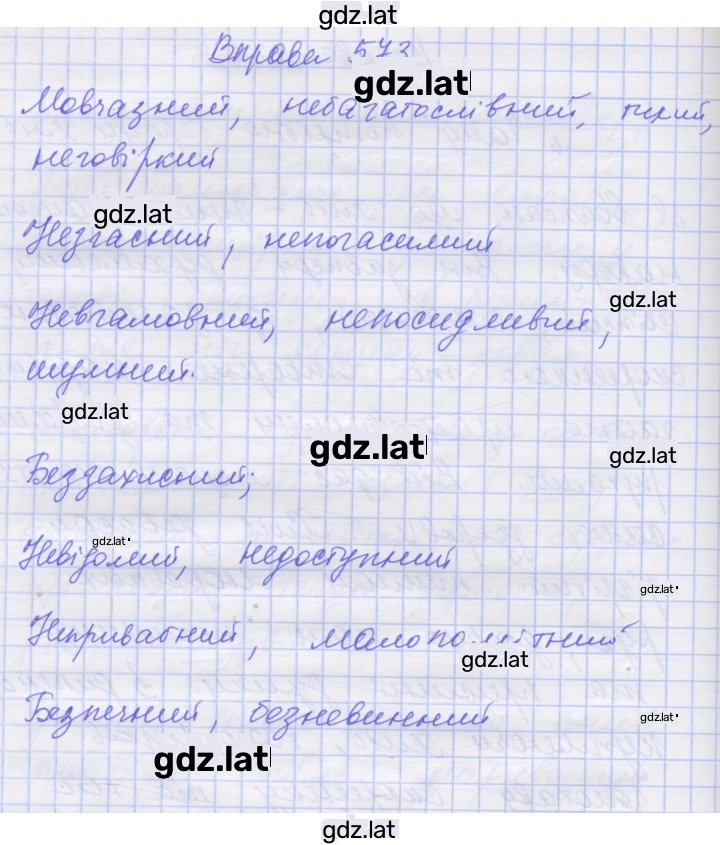 gdz.lat
Вправа 573
gdz.lat
Мовчазний, небагатослівний, тихий,
неговіркий
gdz.lat
Незгасний, непогасимий
gdz.lat
Невгамовний, непосидливий,
шумний.
gdz.lat
gdz.lat
gdz.lat
Беззахисний;
gdz.lat
Невідомий, недоступний
gdz.lat
Непривабний, малопомітний
gdz.lat
gdz.lat
Безпечний, безневинний
gdz.lat
gdz.lat